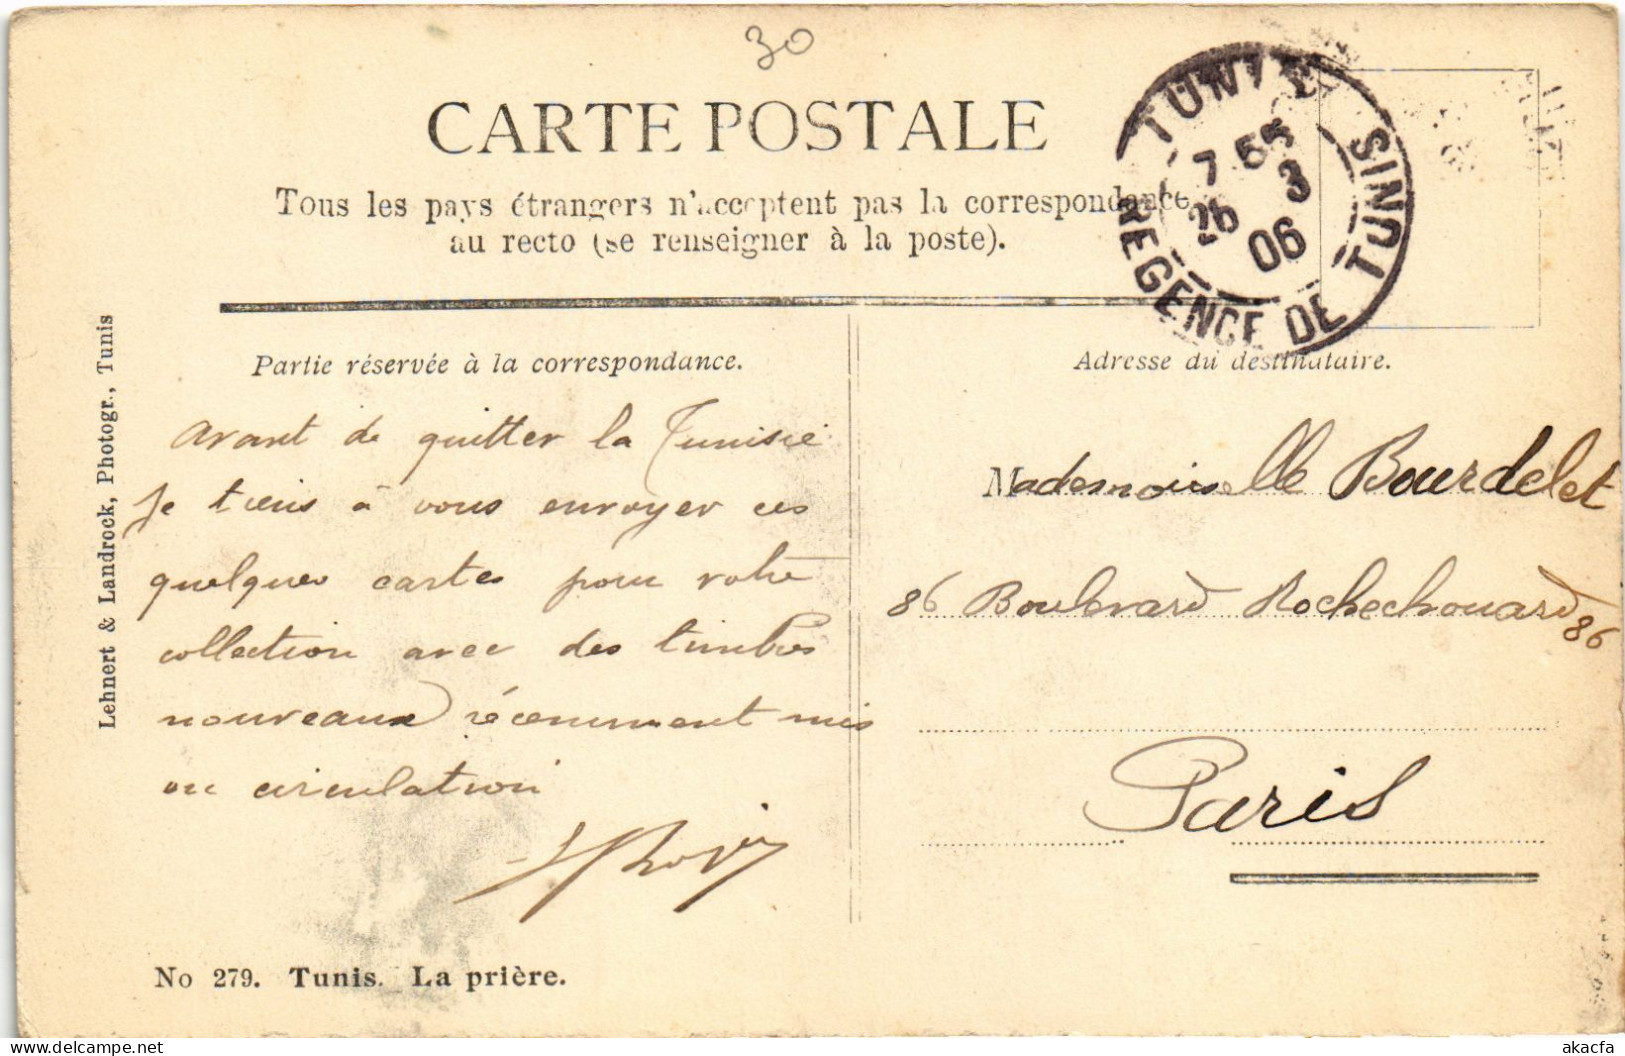 30
CARTE POSTALE
Tous les pays étrangers n'acceptent pas la correspondance
au recto (se renseigner à la poste).
TUNIS
7 55
26 3
06
REGENCE DE TUNIS
Partie réservée à la correspondance.
Adresse du destinataire.
Avant de quitter la Tunisie
je tiens à vous envoyer ces
quelques cartes pour votre
collection avec des timbres
nouveaux récemment mis
en circulation
Mademoiselle Bourdelet
86 Boulevard Rochechouard 86
Paris
Lehnert & Landrock, Photogr., Tunis
No 279. Tunis. La prière.
akacfa